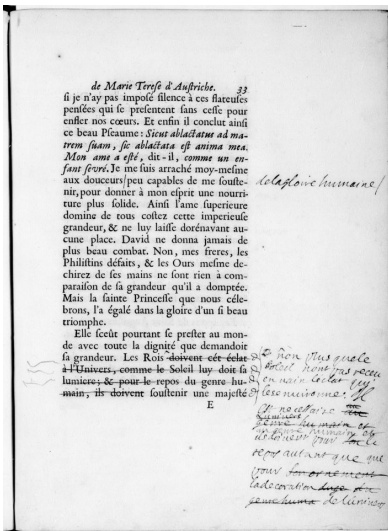 de Marie Terese d'Austriche. 33
si je n'ay pas imposé silence à ces flateuses
pensées qui se presentent sans cesse pour
enfler nos cœurs. Et enfin il conclut ainsi
ce beau Pseaume : Sicut ablactatus ad ma-
trem suam, sic ablactata est anima mea.
Mon ame a esté, dit-il, comme un en-
fant sevré. Je me suis arraché moy-mesme
aux douceurs/peu capables de me souste-
nir, pour donner à mon esprit une nourri-
ture plus solide. Ainsi l'ame superieure
domine de tous costez cette imperieuse
grandeur, & ne luy laisse dorénavant au-
cune place. David ne donna jamais de
plus beau combat. Non, mes freres, les
Philistins défaits, & les Ours mesme de-
chirez de ses mains ne sont rien à com-
paraison de sa grandeur qu'il a domptée.
Mais la sainte Princesse que nous céle-
brons, l'a égalé dans la gloire d'un si beau
triomphe.
Elle sceût pourtant se prester au mon-
de avec toute la dignité que demandoit
sa grandeur. Les Rois doivent cét éclat
à l'Univers, comme le Soleil luy doit sa
lumiere; & pour le repos du genre hu-
main, ils doivent soustenir une majesté
E
de la gloire humaine/
non plus que le
soleil n'ont pas receu
en vain l'éclat qui
les environne. Il
est necessaire
genre humain et
doivent pour le
repos autant que
pour
la decoration
genre huma de l'univers